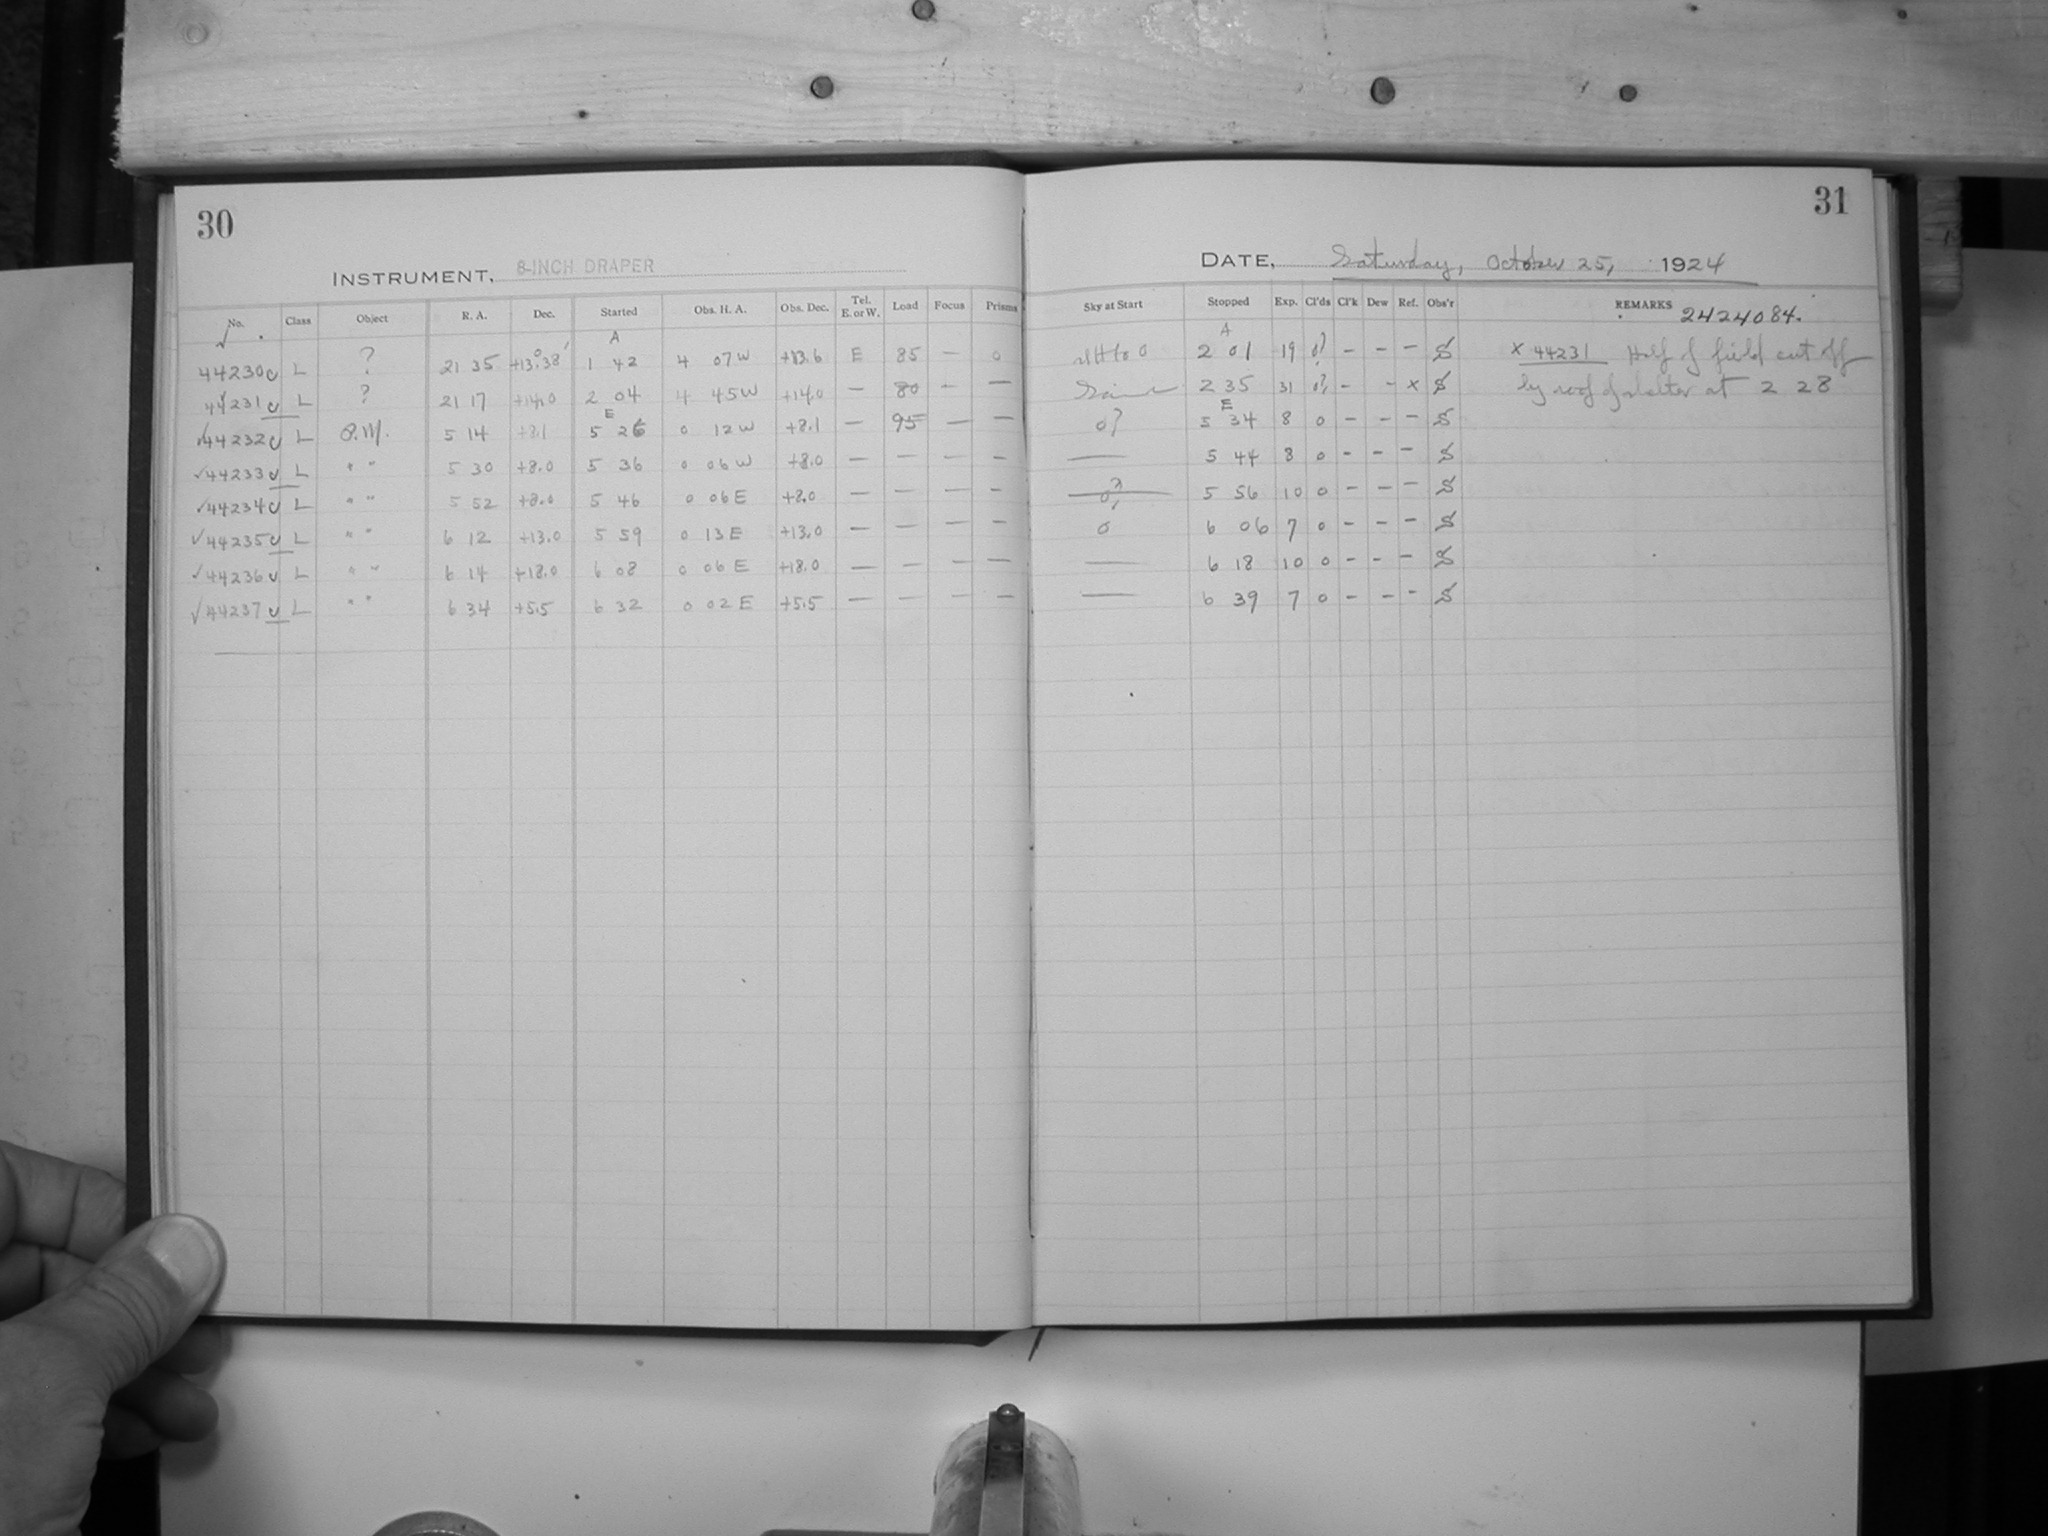 30
INSTRUMENT, 8-INCH DRAPER
No. Class Object R. A. Dec. Started Obs. H. A. Obs. Dec. Tel. E. or W. Load Focus Prisms
A
44230 L ? 21 35 +13°38' 1 42 4 07 W +13.6 E 85 — 0
44231 L ? 21 17 +14.0 2 04 4 45 W +14.0 — 80 — —
E
✓44232 L P.M. 5 14 +8.1 5 26 0 12 W +8.1 — 95 — —
✓44233 L " " 5 30 +8.0 5 36 0 06 W +8.0 — — — —
✓44234 L " " 5 52 +8.0 5 46 0 06 E +8.0 — — — —
✓44235 L " " 6 12 +13.0 5 59 0 13 E +13.0 — — — —
✓44236 L " " 6 14 +18.0 6 08 0 06 E +18.0 — — — —
✓44237 L " " 6 34 +5.5 6 32 0 02 E +5.5 — — — —
31
DATE, Saturday, October 25, 1924
Sky at Start Stopped Exp. Cl'ds Cl'k Dew Ref. Obs'r REMARKS 2424084.
A
2 01 19 0? — — — S x 44231 Half of field cut off
Same 2 35 31 0? — — x S by roof of shelter at 2 28
E
0? 5 34 8 0 — — — S
— 5 44 8 0 — — — S
0? 5 56 10 0 — — — S
0 6 06 7 0 — — — S
— 6 18 10 0 — — — S
— 6 39 7 0 — — — S